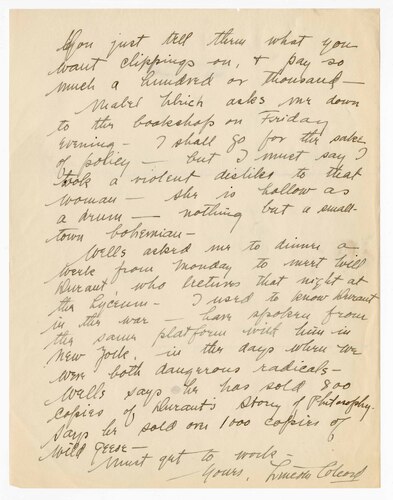 You just tell them what you
want clippings on, & pay so
much a hundred or thousand—
Mabel Ulrich asks me down
to the bookshop on Friday
evening— I shall go for the sake
of policy— but I must say I
took a violent dislike to that
woman— she is hollow as
a drum— nothing but a small-
town bohemian—
Wells asked me to dinner a
week from Monday to meet Will
Durant, who lectures that night at
the Lyceum— I used to know Durant
in the war— have spoken from
the same platform with him in
New York, in the days when we
were both dangerous radicals—
Wells says he has sold 800
copies of Durant's Story of Philosophy.
Says he sold over 1000 copies of
Wild Geese—
Must get to work—
Yours, Lincoln Colcord